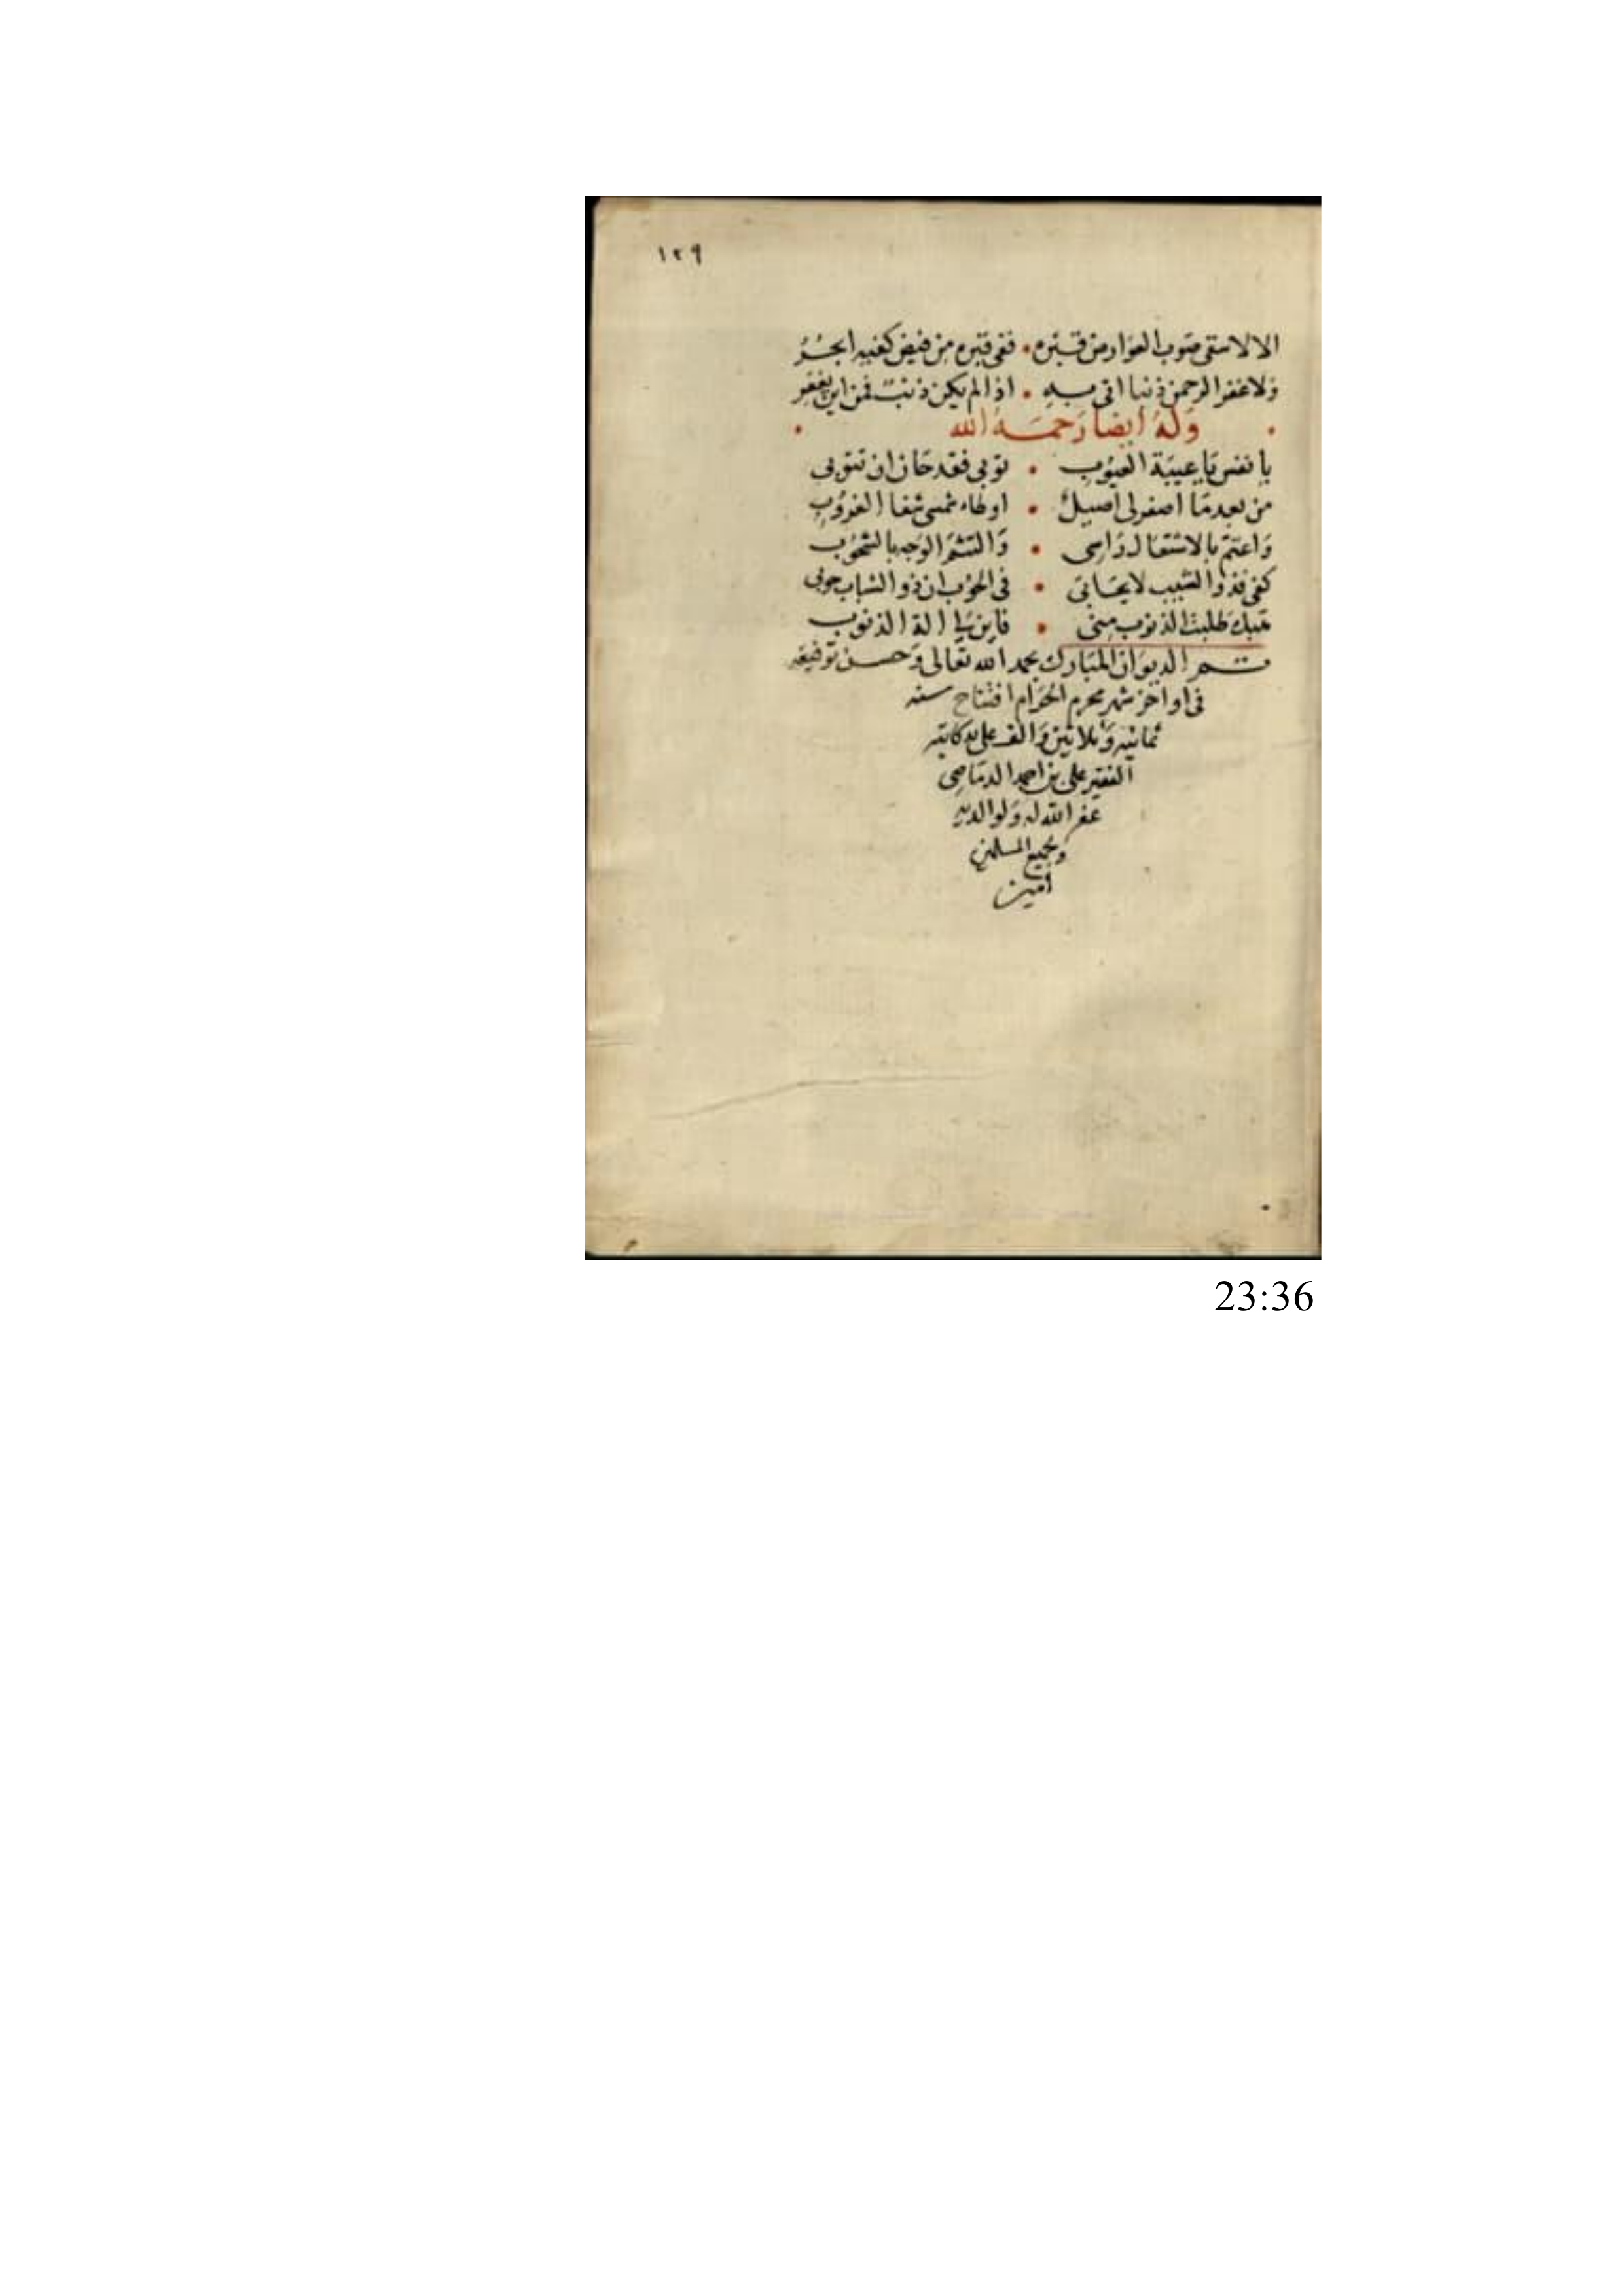 ١٢٩
الا لاستقى صوب العوارض قبره • ففى قبره من فيض كفيه ابحر
ولا غفر الرحمن ذنبا اتى به • اذا لم يكن ذنب فمن اين يغفر
• وله ايضا رحمه الله •
يا نفس يا عيبة العيوب • توبى فقد حان ان تتوبى
من بعد ما اصفر لى اصيل • شمسى شفا الغروب
واعتم بالاشتعال راسى • والتثم الوجه بالشحوب
كفى فذو الشيب لا يحابى • فى الحوب ان ذو الشباب حوبى
هبك طلبت الذنوب منى • فاين لى الة الذنوب
تم الديوان المبارك بحمد الله تعالى وحسن توفيقه
فى اواخر شهر محرم الحرام افتتاح سنه
ثمانيه وثلاثين والف على يد كاتبه
الفقير على بن احمد
غفر الله له ولوالديه
ولجميع المسلمين
امين
23:36